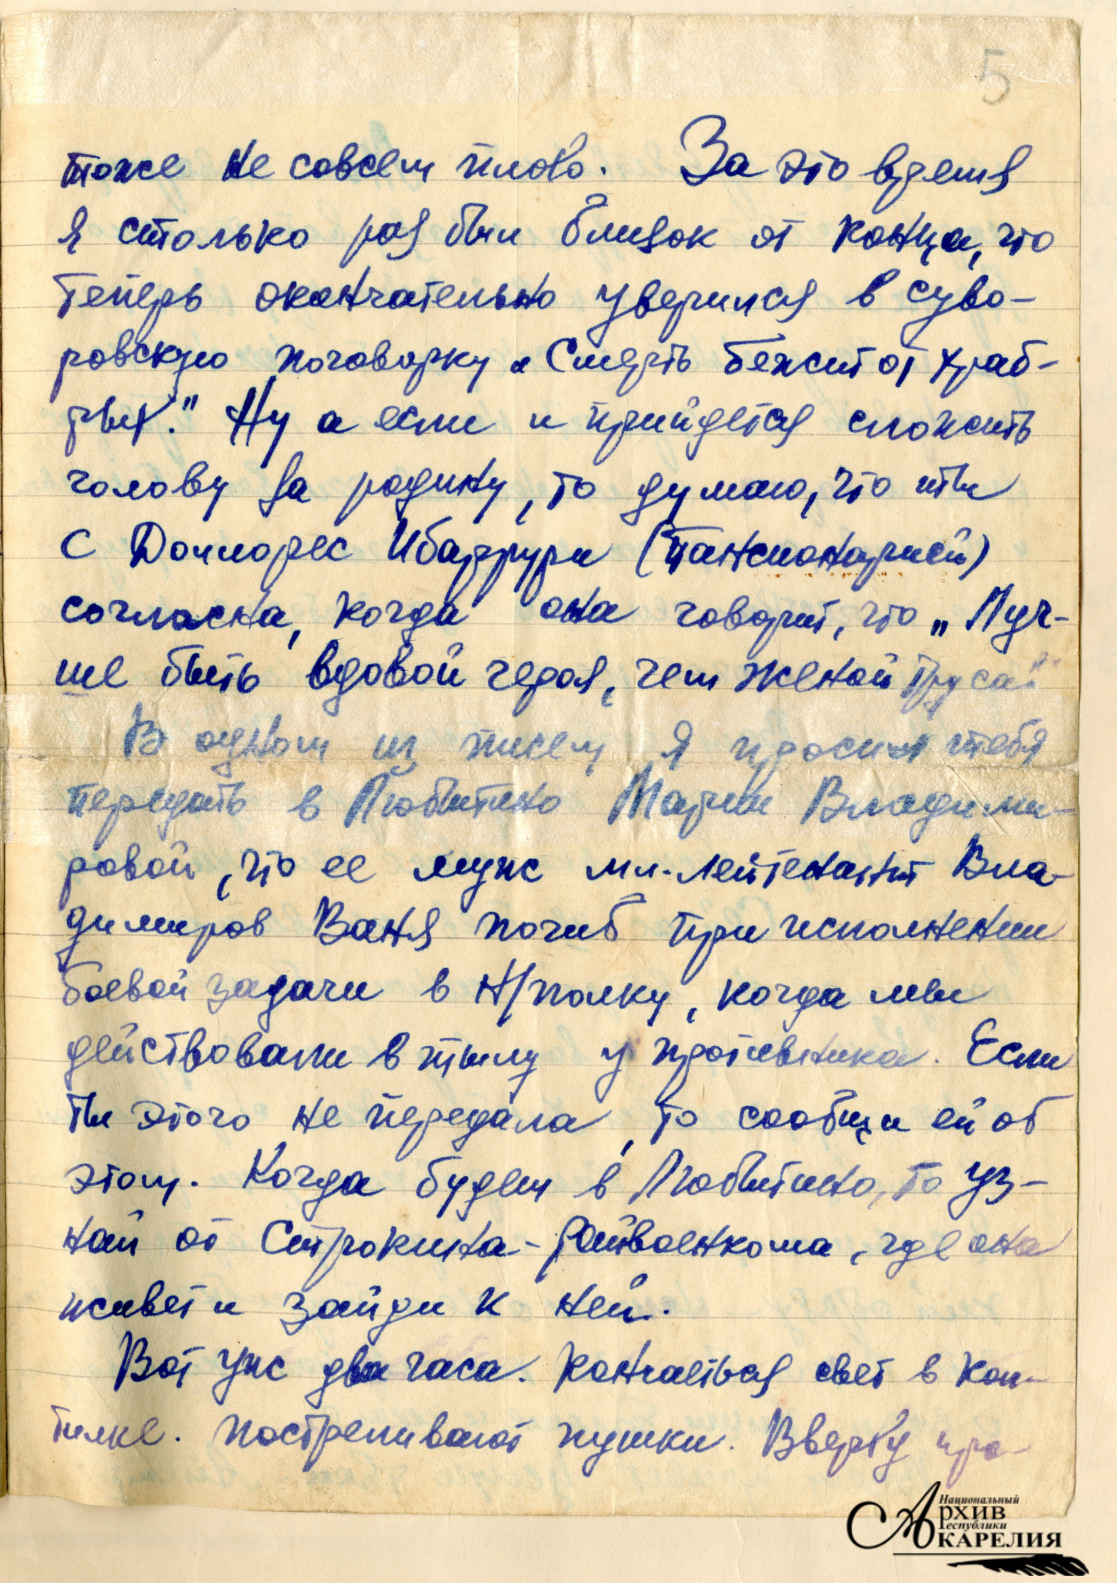 5
тоже не совсем плохо. За это время
я столько раз был близок от конца, что
теперь окончательно уверился в суво-
ровскую поговорку „Смерть бежит от храб-
рых." Ну а если и прийдется сложить
голову за родину, то думаю, что ты
с Доллорес Ибаррури (Пансионарией)
согласна, когда она говорит, что „Луч-
ше быть вдовой героя, чем женой труса"
В одном из писем я просил тебя
передать в Любытино Марии Владими-
ровой, что ее муж мл. лейтенант Вла-
димиров Ваня погиб при исполнении
боевой задачи в н/полку, когда мы
действовали в тылу у противника. Если
ты этого не передала, то сообщи ей об
этом. Когда будешь в Любытино, то уз-
най от Строкина-райвоенкома, где она
живет и зайди к ней.
Вот уже два часа. Кончаеться свет в коп-
тилке. Постреливают пушки. Вверху про-
Национальный
Архив
Республики
Карелия